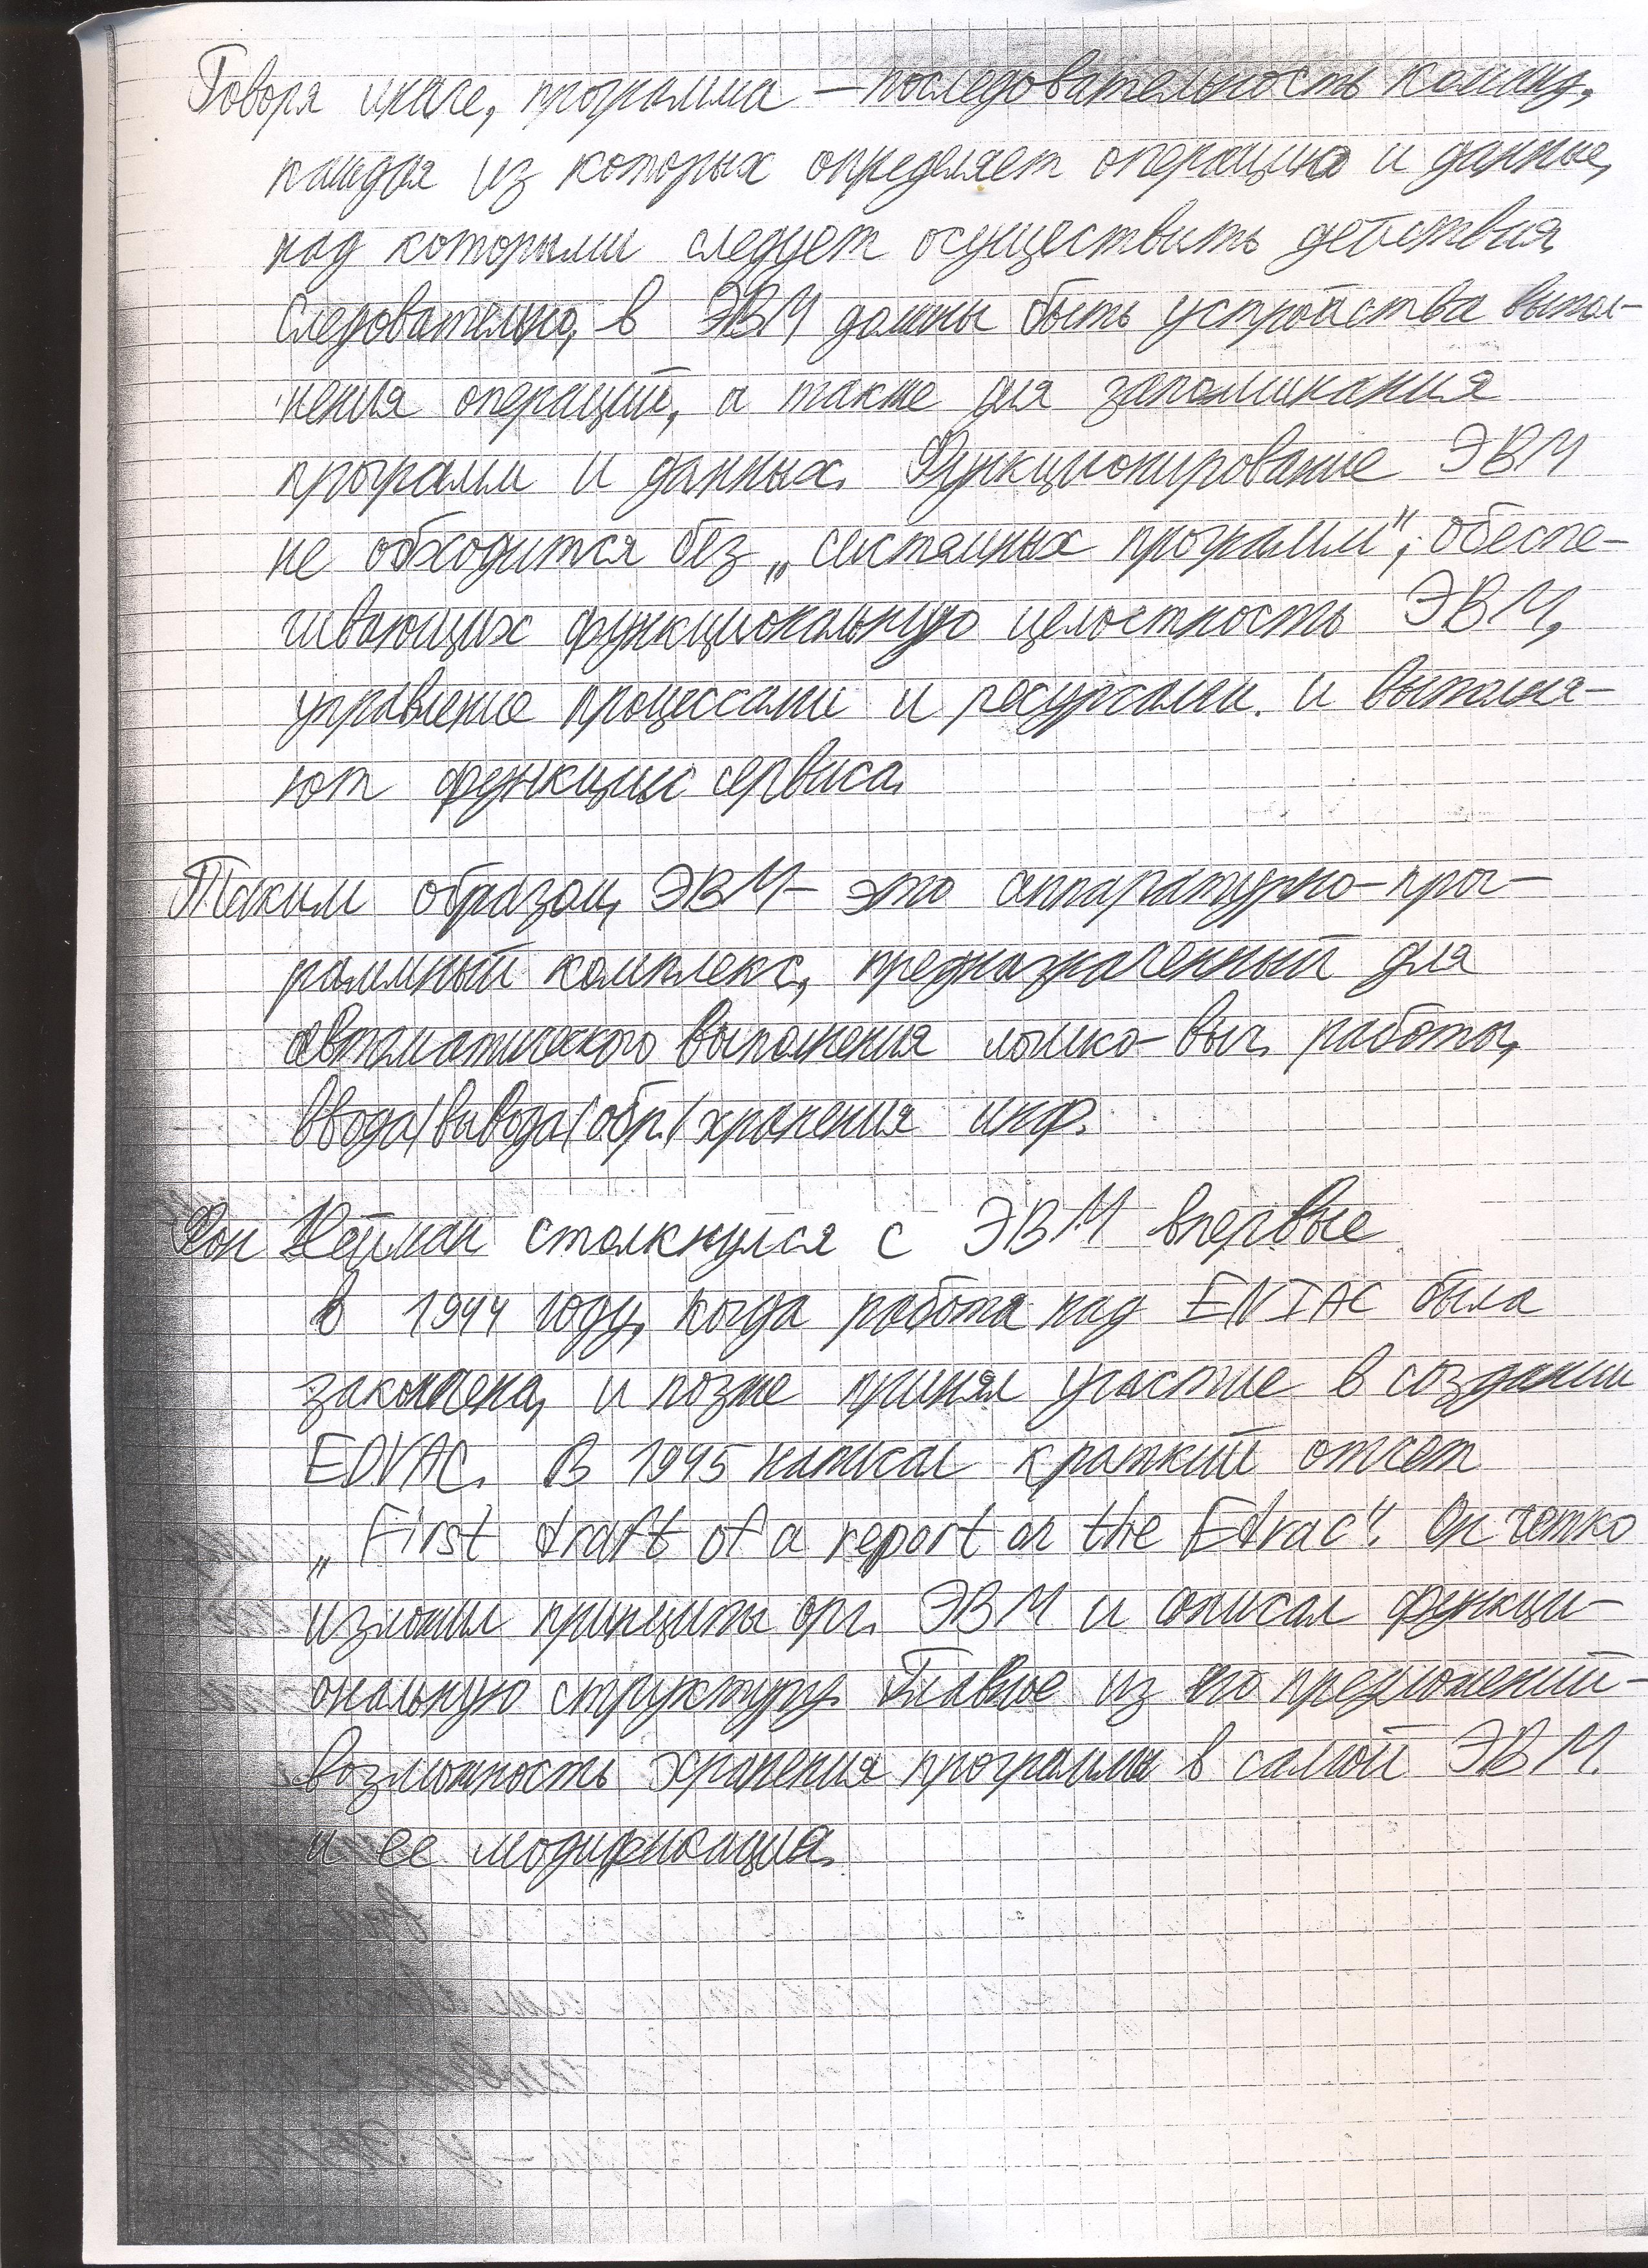 Говоря иначе, программа – последовательность команд,
каждая из которых определяет операцию и данные,
над которыми следует осуществить действия.
Следовательно, в ЭВМ должны быть устройства выпол-
нения операций, а также для запоминания
программ и данных. Функционирование ЭВМ
не обходится без „системных программ", обеспе-
чивающих функциональную целостность ЭВМ,
управление процессами и ресурсами. и выполня-
ют функции сервиса.
Таким образом, ЭВМ – это аппаратурно-прог-
раммный комплекс, предназначенный для
автоматического выполнения логико-выч. работы,
ввода/вывода/обр./хранения инф.
Фон Нейман столкнулся с ЭВМ впервые
в 1944 году, когда работа над ENIAC была
закончена, и позже принял участие в создании
EDVAC. В 1945 написал краткий отчет
„First draft of a report on the Edvac". Он четко
изложил принципы орг. ЭВМ и описал функци-
ональную структуру. Главное из его предложений –
возможность хранения программы в самой ЭВМ.
и ее модификация.